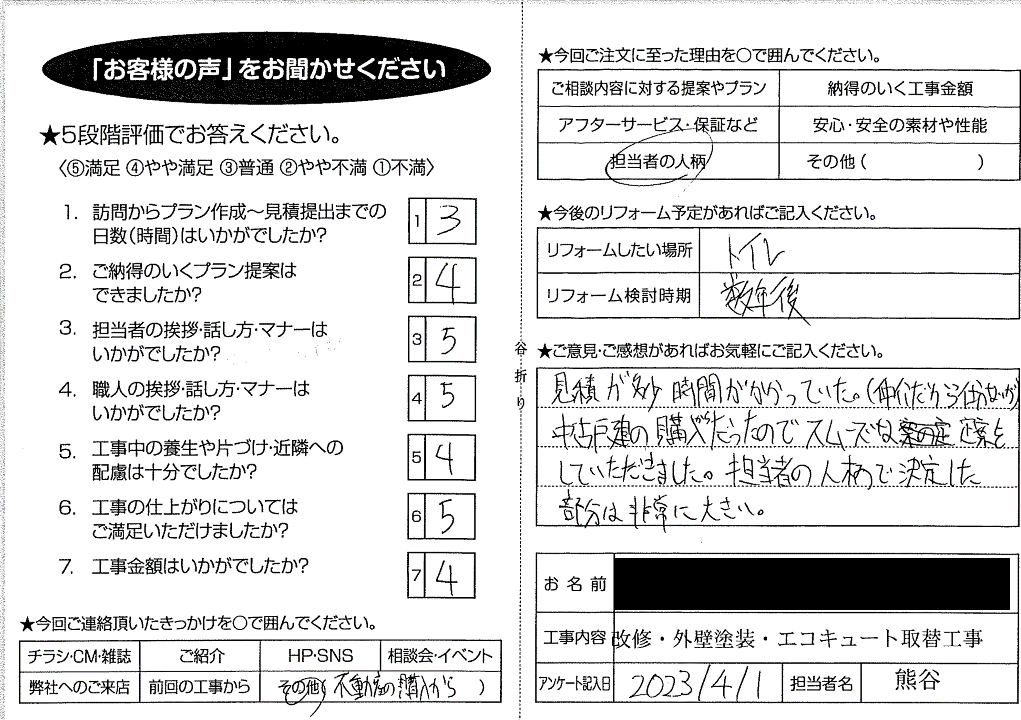 「お客様の声」をお聞かせください
★5段階評価でお答えください。
〈⑤満足 ④やや満足 ③普通 ②やや不満 ①不満〉
1. 訪問からプラン作成～見積提出までの
日数(時間)はいかがでしたか?
1 3
2. ご納得のいくプラン提案は
できましたか?
2 4
3. 担当者の挨拶・話し方・マナーは
いかがでしたか?
3 5
4. 職人の挨拶・話し方・マナーは
いかがでしたか?
4 5
5. 工事中の養生や片づけ・近隣への
配慮は十分でしたか?
5 4
6. 工事の仕上がりについては
ご満足いただけましたか?
6 5
7. 工事金額はいかがでしたか?
7 4
★今回ご連絡頂いたきっかけを○で囲んでください。
チラシ・CM・雑誌 ご紹介 HP・SNS 相談会・イベント
弊社へのご来店 前回の工事から その他( 不動産の購入から )
谷折り
★今回ご注文に至った理由を○で囲んでください。
ご相談内容に対する提案やプラン 納得のいく工事金額
アフターサービス・保証など 安心・安全の素材や性能
担当者の人柄 その他( )
★今後のリフォーム予定があればご記入ください。
リフォームしたい場所 トイレ
リフォーム検討時期 数年後
★ご意見・ご感想があればお気軽にご記入ください。
見積が 時間がかかっていた。(仲介だから仕方ないが)
中古戸建の購入だったのでスムーズな 提案を
していただきました。担当者の人柄で決定した
部分は非常に大きい。
お名前
工事内容 改修・外壁塗装・エコキュート取替工事
アンケート記入日 2023/4/1 担当者名 熊谷